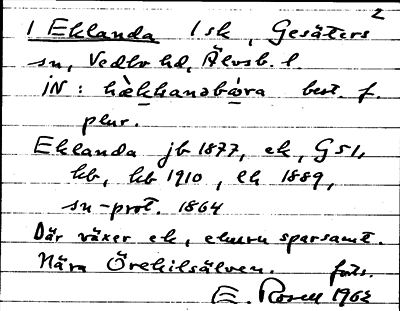 2
1 Eklanda 1 sk, Gesäters
sn, Vedbo hd, Älvsb. l.
iN: hækhanabåra best. f.
plur.
Eklanda jb 1877, ek, GSI,
kb, kb 1910, lk 1889,
sn-prot. 1864
Där växer ek, ehuru sparsamt.
Nära Örekilsälven. forts.
E. Rosell 1962